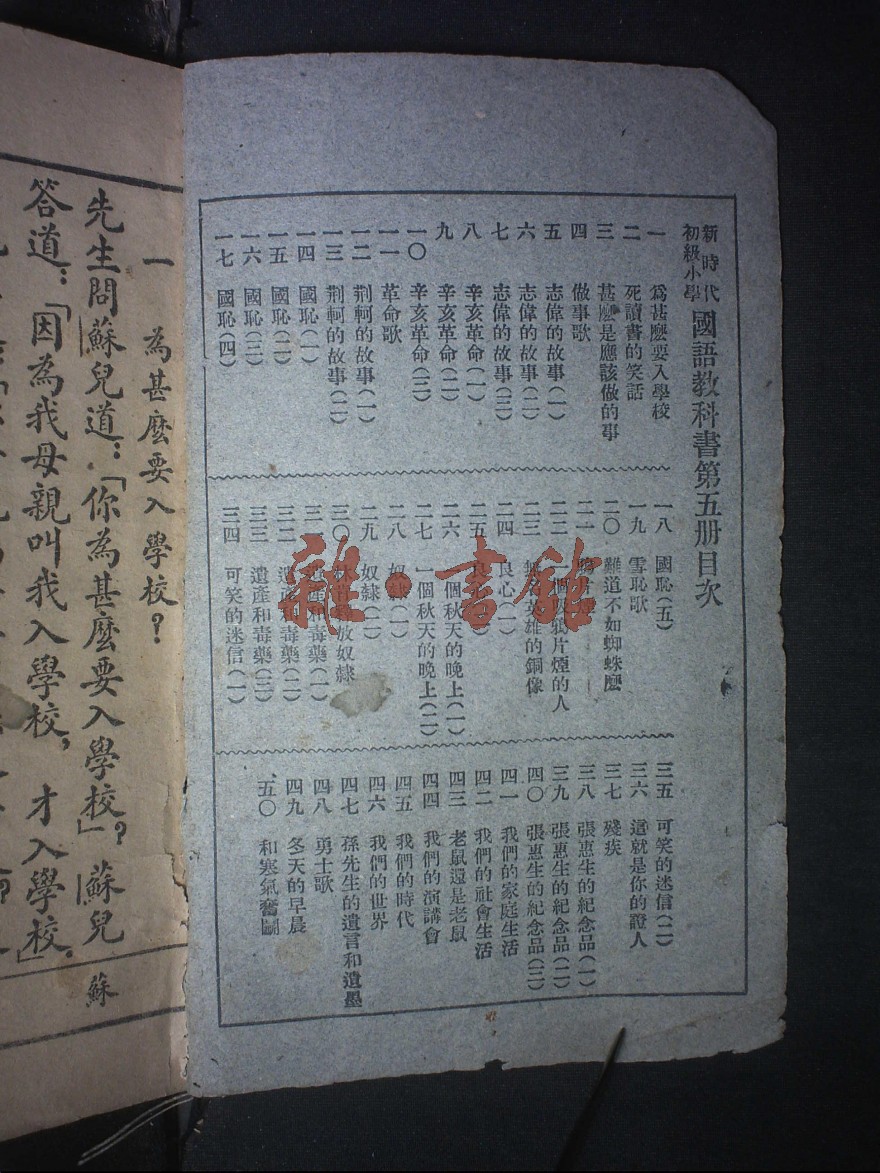 新時代
初級小學
國語教科書第五册目次
一 爲甚麽要入學校
二 死讀書的笑話
三 甚麽是應該做的事
四 做事歌
五 志偉的故事(一)
六 志偉的故事(二)
七 志偉的故事(三)
八 辛亥革命(一)
九 辛亥革命(二)
一〇 辛亥革命(三)
一一 革命歌
一二 荆軻的故事(一)
一三 荆軻的故事(二)
一四 國恥(一)
一五 國恥(二)
一六 國恥(三)
一七 國恥(四)
一八 國恥(五)
一九 雪恥歌
二〇 難道不如蜘蛛麽
二一
二二 一個吸鴉片煙的人
二三 無名英雄的銅像
二四 良心(一)
二五 良心
二六 一個秋天的晚上(一)
二七 一個秋天的晚上(二)
二八 奴隸(一)
二九 奴隸(二)
三〇 放奴隸
三一 遺產和毒藥(一)
三二 遺產和毒藥(二)
三三 遺產和毒藥(三)
三四 可笑的迷信(一)
三五 可笑的迷信(二)
三六 這就是你的證人
三七 殘疾
三八 張惠生的紀念品(一)
三九 張惠生的紀念品(二)
四〇 張惠生的紀念品(三)
四一 我們的家庭生活
四二 我們的社會生活
四三 老鼠還是老鼠
四四 我們的演講會
四五 我們的時代
四六 我們的世界
四七 孫先生的遺言和遺墨
四八 勇士歌
四九 冬天的早晨
五〇 和寒氣奮鬭
一 為甚麽要入學校?
先生問蘇兒道:「你為甚麽要入學校」?蘇兒
答道:「因為我母親叫我入學校,才入學校」。
蘇
雜·書館